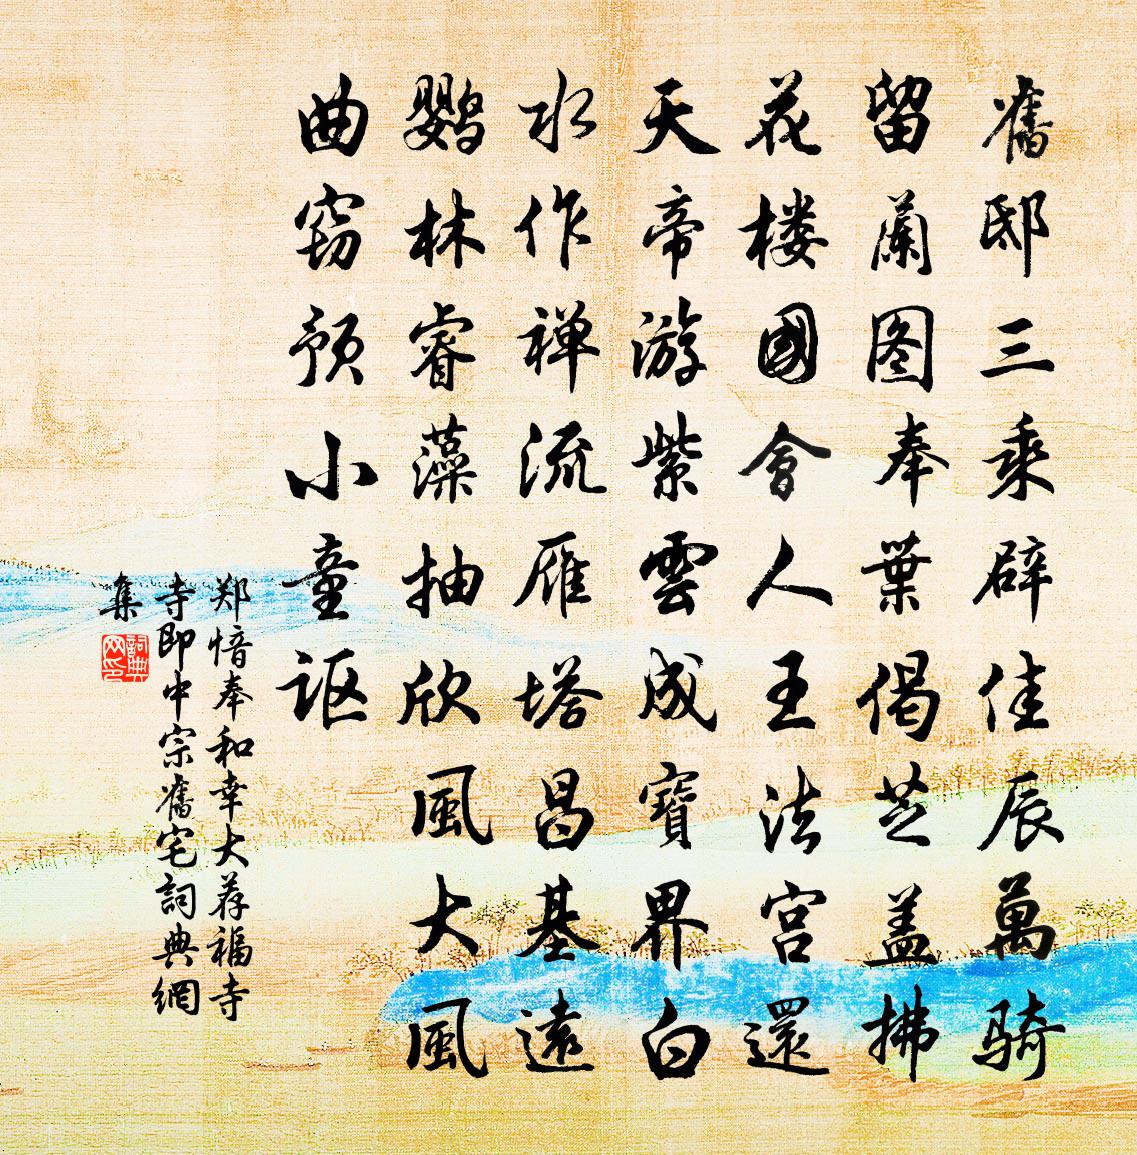 舊邸三乘辟佳辰萬骑
留蘭图奉葉偈芝盖拂
花楼國會人王法宫還
天帝游紫雲成寶界白
水作禅流雁塔昌基遠
鹦林睿藻抽欣風大風
曲窃预小童讴
郑愔奉和幸大荐福寺
寺即中宗舊宅詞典網
集
詞典网印